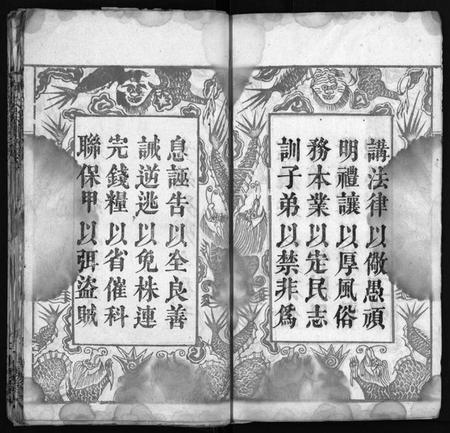 講法律以儆愚頑
明禮讓以厚風俗
務本業以定民志
訓子弟以禁非為
息誣告以全良善
誡逆逃以免株連
完錢糧以省催科
聯保甲以弭盜賊